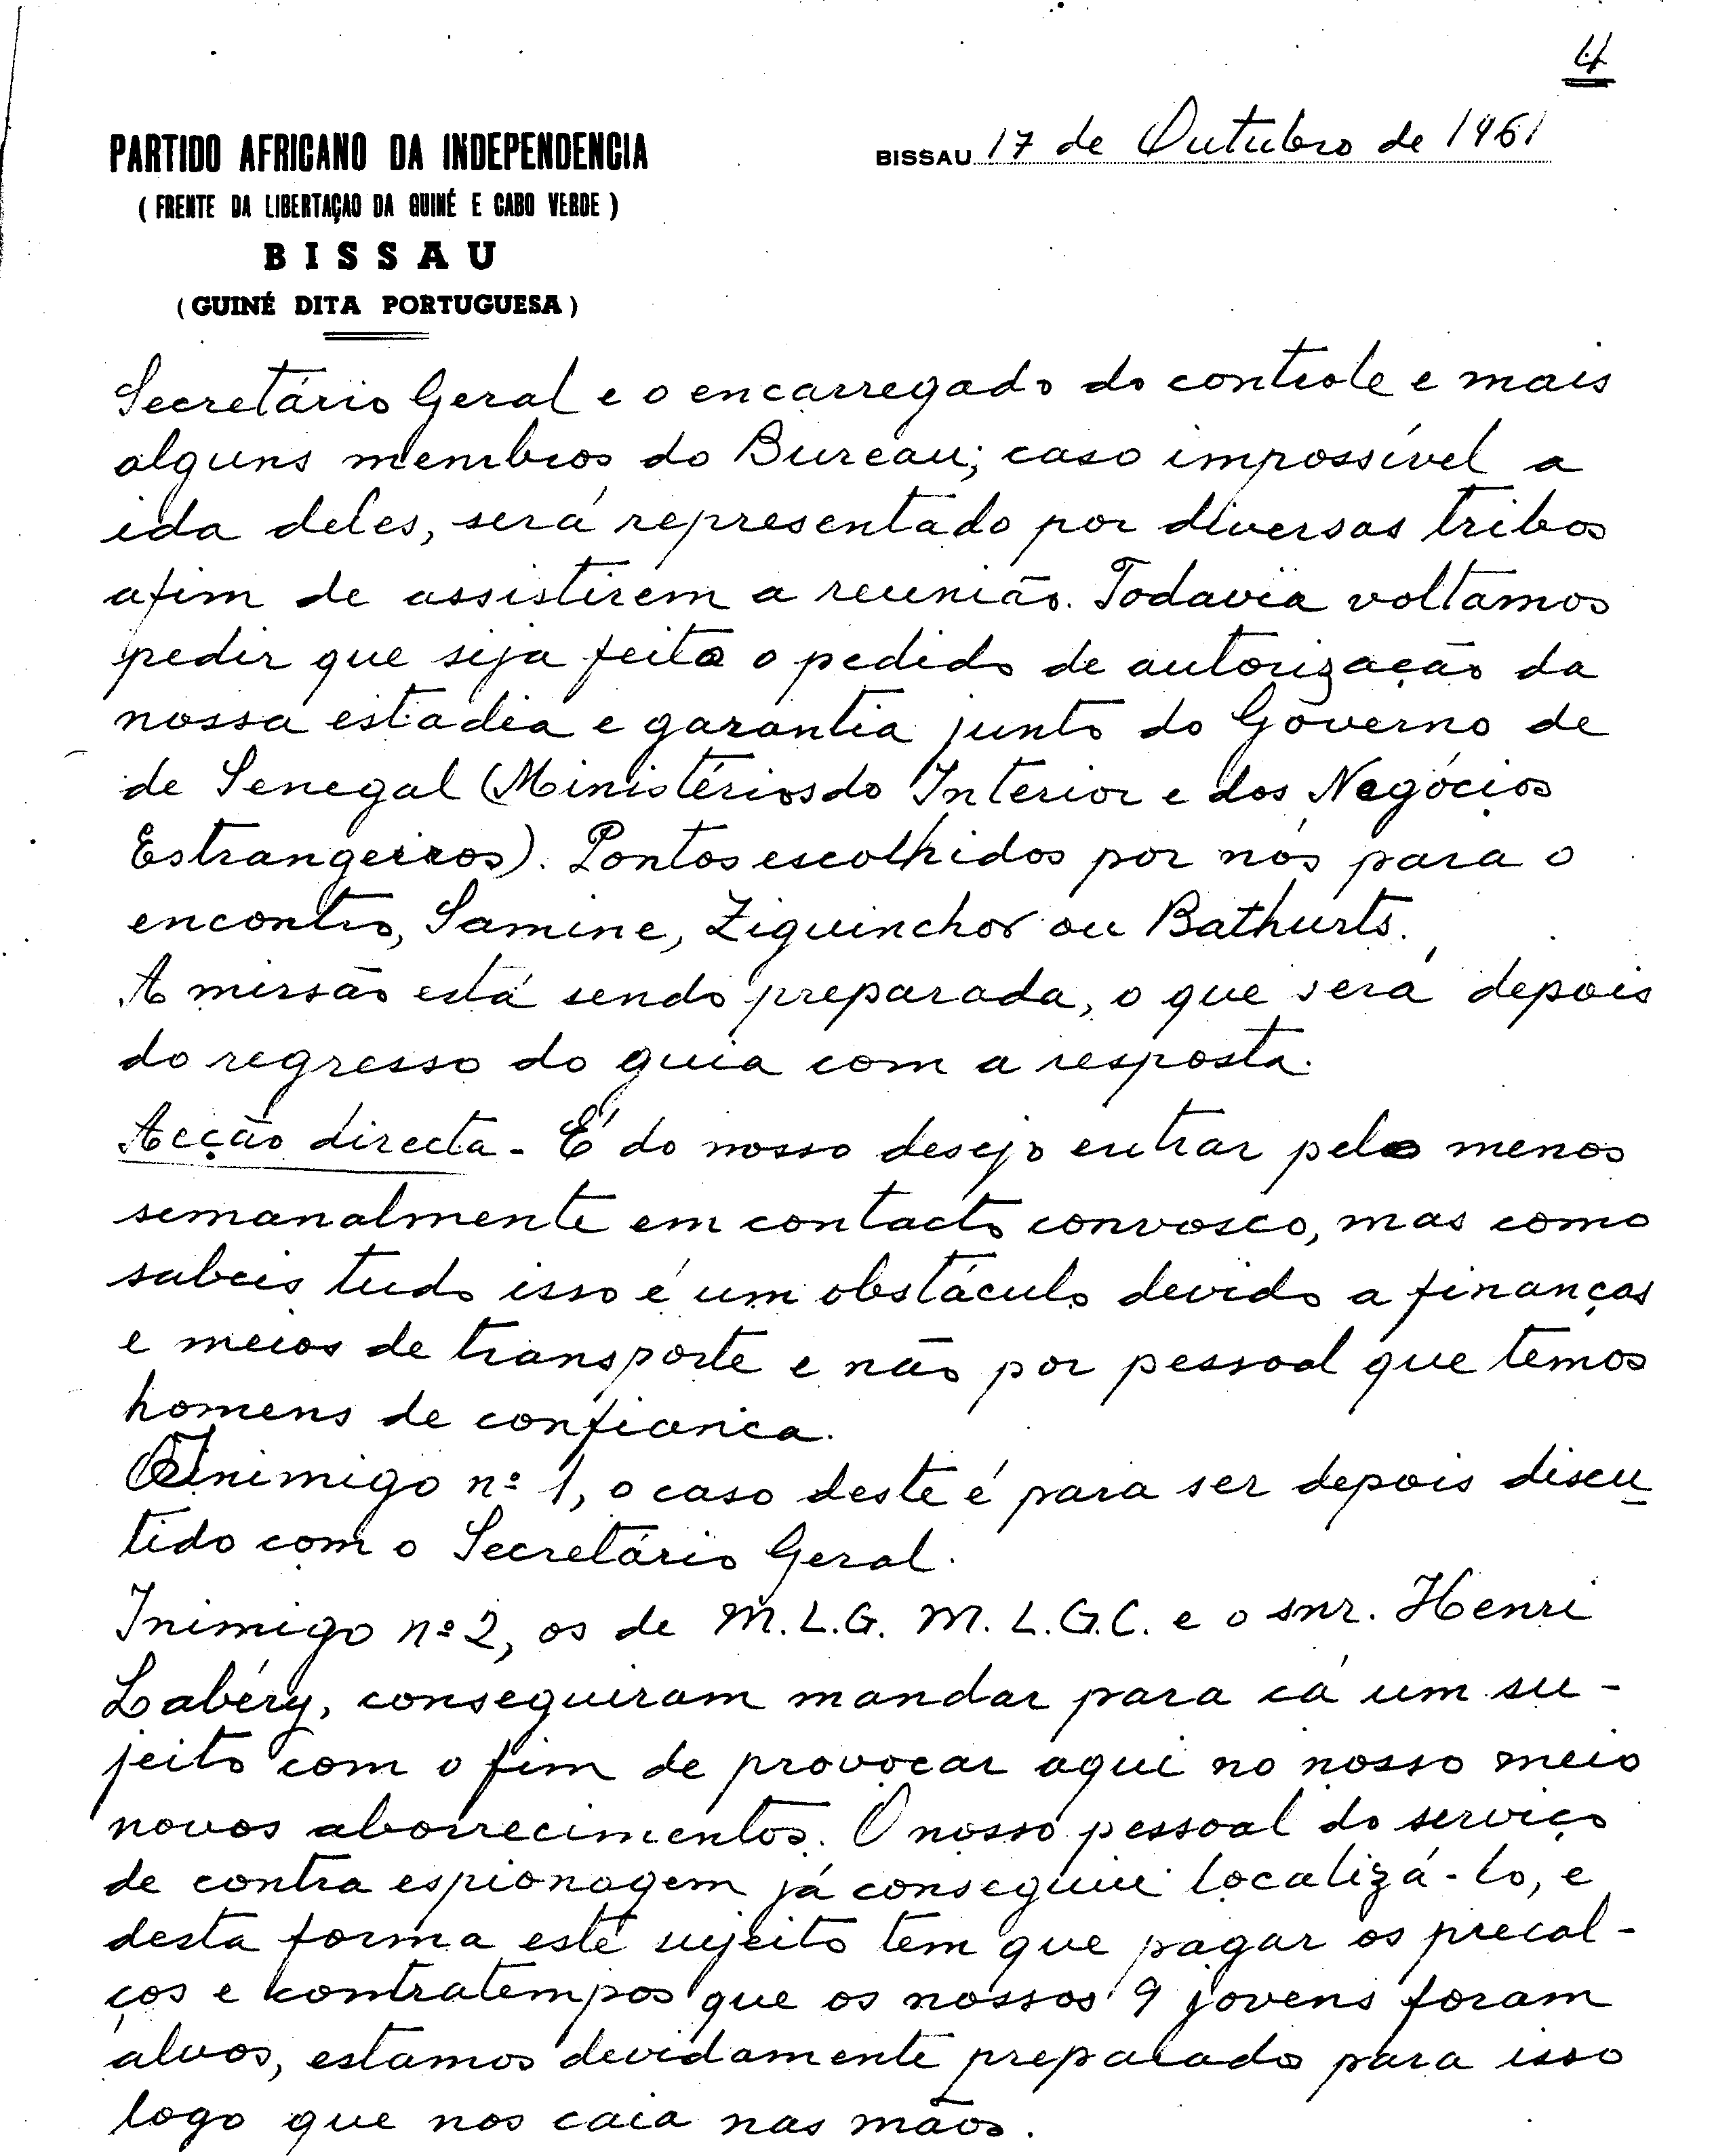 4
BISSAU 17 de Outubro de 1961
PARTIDO AFRICANO DA INDEPENDENCIA
( FRENTE DA LIBERTAÇAO DA GUINÉ E CABO VERDE )
BISSAU
( GUINÉ DITA PORTUGUESA )
Secretário Geral e o encarregado do controle e mais
alguns membros do Bureau; caso impossível a
ida deles, será representado por diversas tribos
afim de assistirem a reunião. Todavia voltamos
pedir que seja feito o pedido de autorização da
nossa estadia e garantia junto do Governo de
de Senegal (Ministérios do Interior e dos Negócios
Estrangeiros). Pontos escolhidos por nós para o
encontro, Samine, Ziguinchor ou Bathurts.
A missão está sendo preparada, o que será depois
do regresso do guia com a resposta.
Acção directa - É do nosso desejo entrar pelo menos
semanalmente em contacto convosco, mas como
sabeis tudo isso é um obstáculo devido a finanças
e meios de transporte e não por pessoal que temos
homens de confiança.
Inimigo nº 1, o caso deste é para ser depois discu-
tido com o Secretário Geral.
Inimigo nº 2, os de M.L.G. M.L.G.C. e o snr. Henri
Labéry, conseguiram mandar para cá um su-
jeito com o fim de provocar aqui no nosso meio
novos aborrecimentos. O nosso pessoal do serviço
de contra espionagem já conseguiu localizá-lo, e
desta forma este sujeito tem que pagar os precal-
ços e contratempos que os nossos 9 jovens foram
alvos, estamos devidamente preparado para isso
logo que nos caia nas mãos.